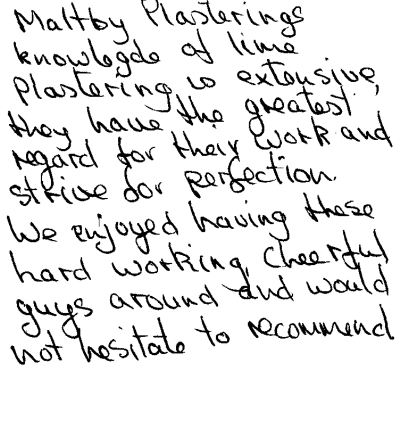 Maltby Plasterings
knowlegde of lime
Plastering is extensive,
they have the greatest
regard for their work and
strive for perfection.
We enjoyed having these
hard working, cheerful
guys around and would
not hesitate to recommend